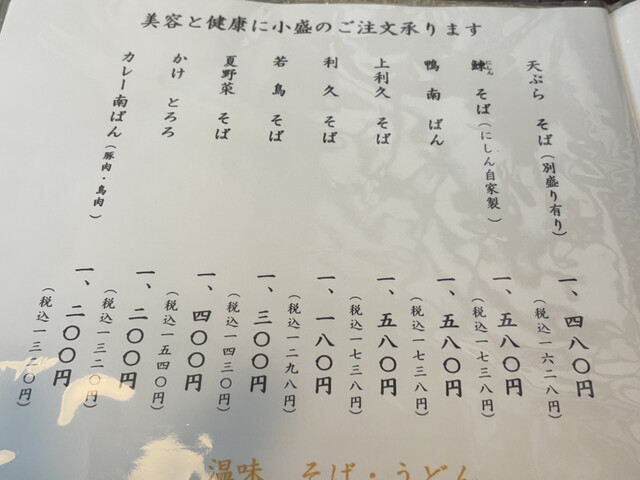 美容と健康に小盛のご注文承ります
天ぷら そば（別盛り有り） 一、四八〇円
（税込一六二八円）
鰊 そば（にしん自家製） 一、五八〇円
（税込一七三八円）
鴨 南 ばん 一、五八〇円
（税込一七三八円）
上利久 そば 一、五八〇円
（税込一七三八円）
利 久 そば 一、一八〇円
（税込一二九八円）
若 鳥 そば 一、三〇〇円
（税込一四三〇円）
夏野菜 そば 一、四〇〇円
（税込一五四〇円）
かけ とろろ 一、二〇〇円
（税込一三二〇円）
カレー南ばん（豚肉・鳥肉） 一、二〇〇円
（税込一三二〇円）
温味 そば・うどん